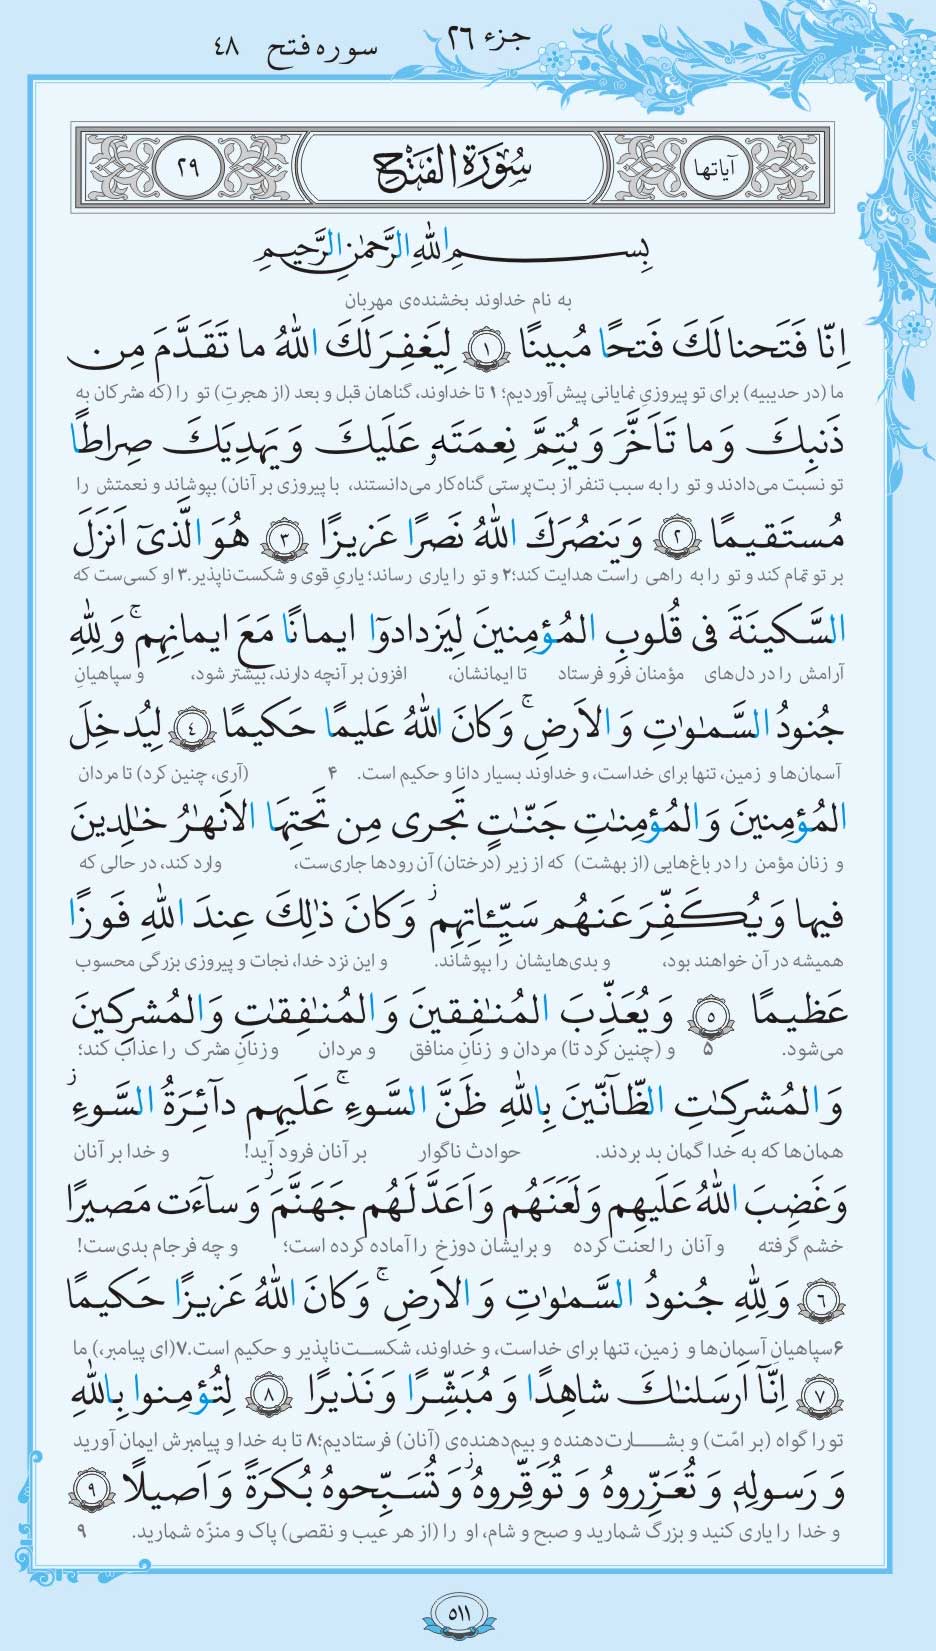 جزء ۲۶ سوره فتح ۴۸
آیاتها سُورَةُ الفَتْح ۲۹
بِسمِ اللهِ الرَّحمٰنِ الرَّحیمِ
به نام خداوند بخشنده‌ی مهربان
اِنّا فَتَحنا لَكَ فَتحًا مُبینًا ﴿۱﴾ لِیَغفِرَ لَكَ اللهُ ما تَقَدَّمَ مِن
ما (در حدیبیه) برای تو پیروزیِ نمایانی پیش آوردیم؛ ۱ تا خداوند، گناهان قبل و بعد (از هجرتِ) تو را (که مشرکان به
ذَنبِكَ وَ ما تَاَخَّرَ وَ یُتِمَّ نِعمَتَهٖ عَلَیكَ وَ یَهدِیَكَ صِراطًا
تو نسبت می‌دادند و تو را به سبب تنفر از بت‌پرستی گناه‌کار می‌دانستند، با پیروزی بر آنان) بپوشاند و نعمتش را
مُستَقیمًا ﴿۲﴾ وَ یَنصُرَكَ اللهُ نَصرًا عَزیزًا ﴿۳﴾ هُوَ الَّذیٓ اَنزَلَ
بر تو تمام کند و تو را به راهی راست هدایت کند؛ ۲ و تو را یاری رساند؛ یاریِ قوی و شکست‌ناپذیر. ۳ او کسی‌ست که
السَّکینَةَ فی قُلوبِ المُؤمِنینَ لِیَزدادوٓا ایمانًا مَعَ ایمانِهِم ۚ وَ لِلّٰهِ
آرامش را در دل‌های مؤمنان فرو فرستاد تا ایمانشان، افزون بر آنچه دارند، بیشتر شود، و سپاهیانِ
جُنودُ السَّمٰوٰتِ وَ الاَرضِ ۚ وَ کانَ اللهُ عَلیمًا حَکیمًا ﴿٤﴾ لِیُدخِلَ
آسمان‌ها و زمین، تنها برای خداست، و خداوند بسیار دانا و حکیم است. ۴ (آری، چنین کرد) تا مردان
المُؤمِنینَ وَ المُؤمِنٰتِ جَنّٰتٍ تَجری مِن تَحتِهَا الاَنهٰرُ خٰلِدینَ
و زنان مؤمن را در باغ‌هایی (از بهشت) که از زیر (درختان) آن رودها جاری‌ست، وارد کند، در حالی که
فیها وَ یُکَفِّرَ عَنهُم سَیِّـٔاتِهِم ۚ وَ کانَ ذٰلِكَ عِندَ اللهِ فَوزًا
همیشه در آن خواهند بود، و بدی‌هایشان را بپوشاند. و این نزد خدا، نجات و پیروزی بزرگی محسوب
عَظیمًا ﴿۵﴾ وَ یُعَذِّبَ المُنٰفِقینَ وَ المُنٰفِقٰتِ وَ المُشرِکینَ
می‌شود. ۵ و (چنین کرد تا) مردان و زنانِ منافق و مردان و زنانِ مشرک را عذاب کند؛
وَ المُشرِکٰتِ الظّآنّینَ بِاللهِ ظَنَّ السَّوءِ ۚ عَلَیهِم دآئِرَةُ السَّوءِ ۖ
همان‌ها که به خدا گمان بد بردند. حوادث ناگوار بر آنان فرود آید! و خدا بر آنان
وَ غَضِبَ اللهُ عَلَیهِم وَ لَعَنَهُم وَ اَعَدَّ لَهُم جَهَنَّمَ ۖ وَ سآءَت مَصیرًا
خشم گرفته و آنان را لعنت کرده و برایشان دوزخ را آماده کرده است؛ و چه فرجام بدی‌ست!
﴿۶﴾ وَ لِلّٰهِ جُنودُ السَّمٰوٰتِ وَ الاَرضِ ۚ وَ کانَ اللهُ عَزیزًا حَکیمًا
۶ سپاهیان آسمان‌ها و زمین، تنها برای خداست، و خداوند، شکست‌ناپذیر و حکیم است. ۷ (ای پیامبر،) ما
﴿۷﴾ اِنّآ اَرسَلنٰكَ شاهِدًا وَ مُبَشِّرًا وَ نَذیرًا ﴿۸﴾ لِتُؤمِنوا بِاللهِ
تو را گواه (بر امّت) و بشارت‌دهنده و بیم‌دهنده‌ی (آنان) فرستادیم؛ ۸ تا به خدا و پیامبرش ایمان آورید
وَ رَسولِهٖ وَ تُعَزِّروهُ وَ تُوَقِّروهُ ۖ وَ تُسَبِّحوهُ بُکرَةً وَ اَصیلًا ﴿۹﴾
و خدا را یاری کنید و بزرگ شمارید و صبح و شام، او را (از هر عیب و نقصی) پاک و منزّه شمارید. ۹
۵۱۱